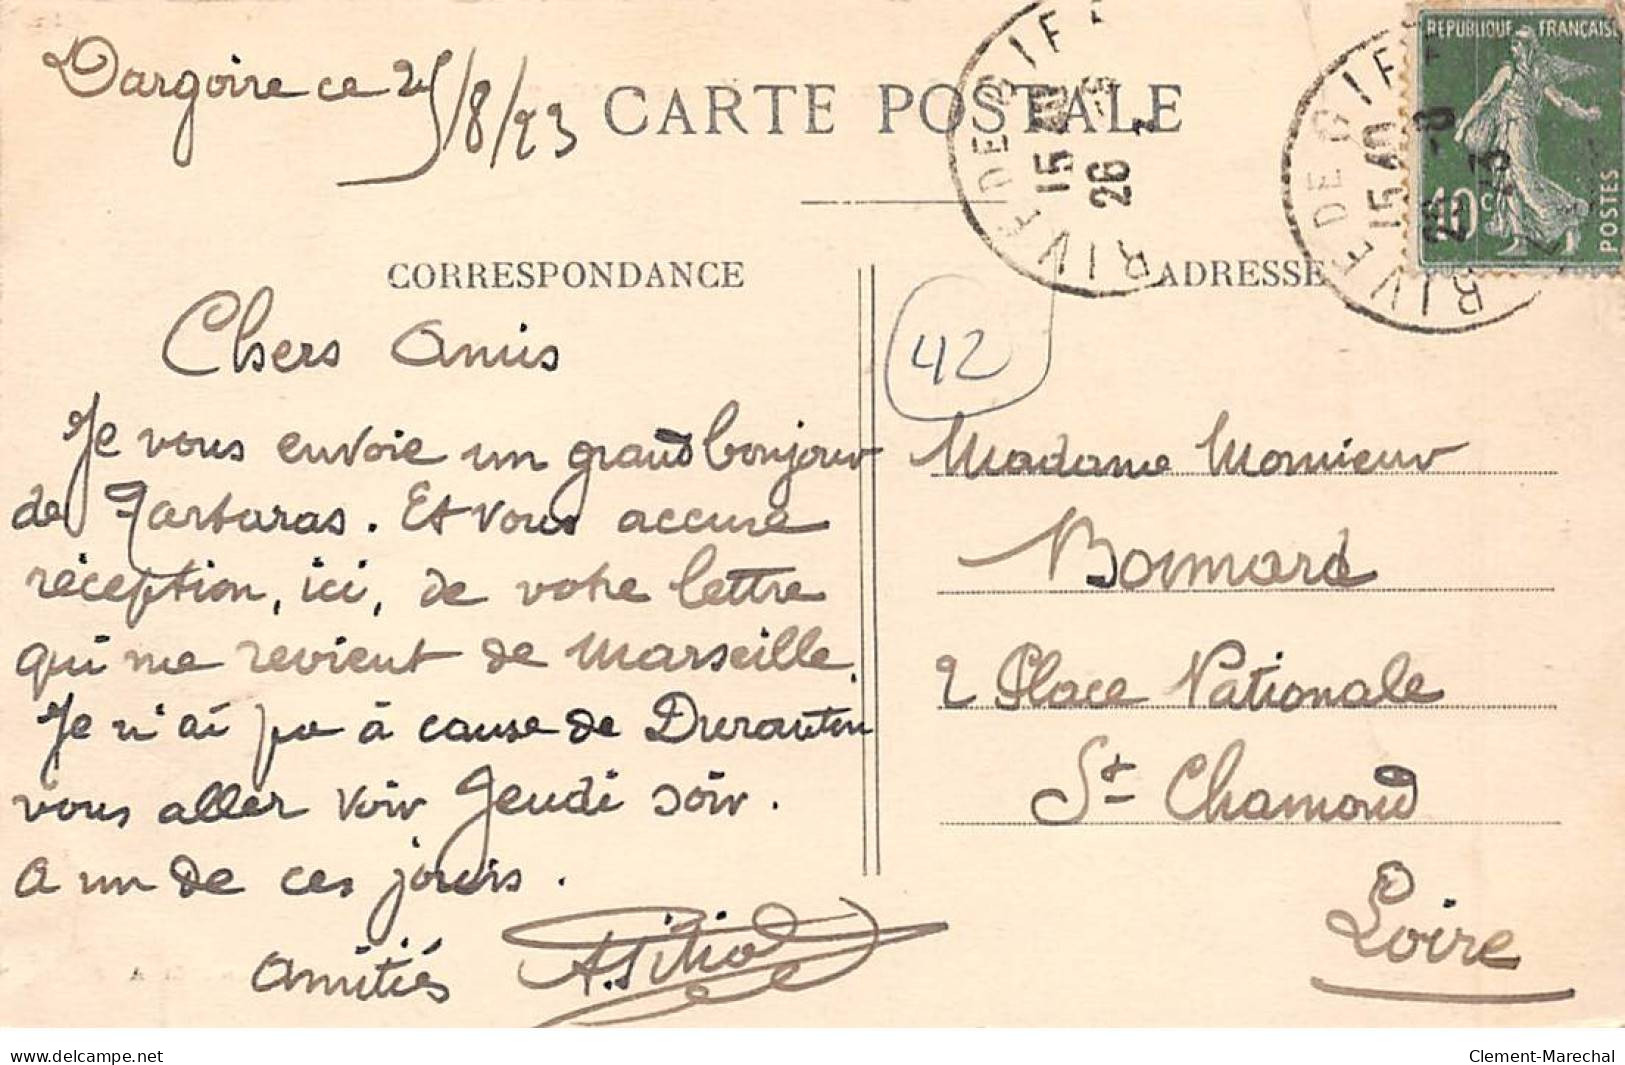 Dargoire ce 25/8/23
CARTE POSTALE
RIVE DE GIER
15 40
26
RIVE DE GIER
15 40
REPUBLIQUE FRANÇAISE
10c
POSTES
CORRESPONDANCE
Chers Amis
Je vous envoie un grand bonjour
de Tartaras. Et vous accuse
réception, ici, de votre lettre
qui me revient de Marseille.
Je n'ai pu à cause de Durantin
vous aller voir Jeudi soir.
A un de ces jours.
Amitiés
ADRESSE
42
Madame Monsieur
Bonnard
2 Place Nationale
St Chamond
Loire
www.delcampe.net
Clement-Marechal